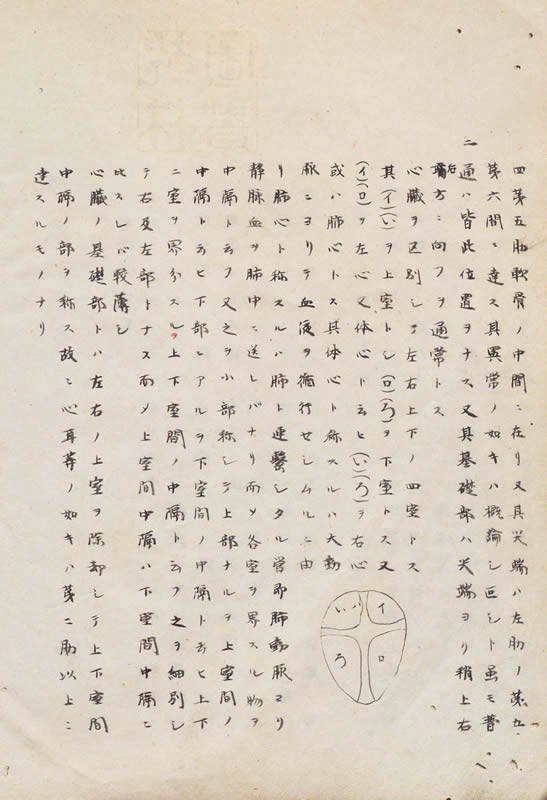 四第五肋軟骨ノ中間ニ在リ又其尖端ハ左肋ノ第五
第六間ニ達ス其異常ノ如キハ概論シ叵シト虽モ普
通ハ皆此位置ヲナス又其基礎部ハ尖端ヨリ稍上右
方ニ向フヲ通常トス
心臓ヲ区別シテ左右上下ノ四室トス
其(イ)(い)ヲ上室トシ(ロ)(ろ)ヲ下室トス又
(イ)(ロ)ヲ左心又体心ト云ヒ(い)(ろ)ヲ右心
或ハ肺心トス其体心ト称スルハ大動
脈ニヨリテ血液ヲ循行セシムルニ由
リ肺心ト称スルハ肺ト連繫シタル管即肺動脈ヨリ
静脉血ヲ肺中ニ送レバナリ而メ各室ヲ界スル物ヲ
中隔ト云フ又之ヲ小部称シテ上部ナルヲ上室間ノ
中隔ト云ヒ下部ニアルヲ下室間ノ中隔ト云ヒ上下
ニ室ヲ界分スルヲ上下室間ノ中隔ト云フ之ヲ細別シ
テ右及左部トナス而メ上室間中隔ハ下室間中隔ニ
比スレバ較薄シ
心臓ノ基礎部トハ左右ノ上室ヲ除却シテ上下室間
中隔ノ部ヲ称ス故ニ心耳等ノ如キハ第二肋以上ニ
達スルモノナリ
イ
い
ロ
ろ